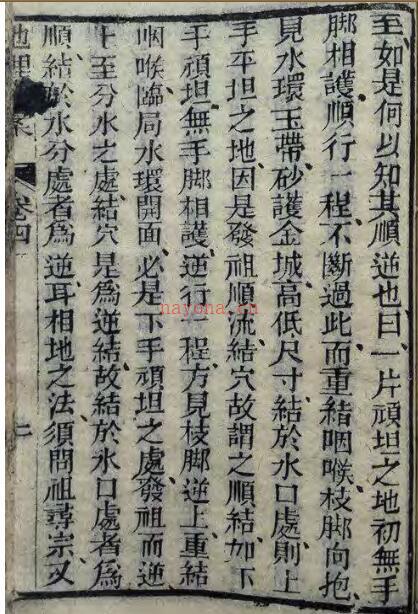 至如是何以知其順逆也曰一片頑坦之地初無手
脚相護順行一程不斷過此而重結咽喉枝脚向抱
見水環玉帶砂護金城高低尺寸結於水口處則上
手平坦之地因是發祖順流結穴故謂之順結如下
手頑坦無手脚相護逆行一程方見枝脚逆上重結
咽喉臨局水環開面必是下手頑坦之處發祖而逆
上至分水之處結穴是爲逆結故結於水口處者爲
順結於水分處者爲逆耳相地之法須問祖尋宗又
地理 卷四
nayona.cn